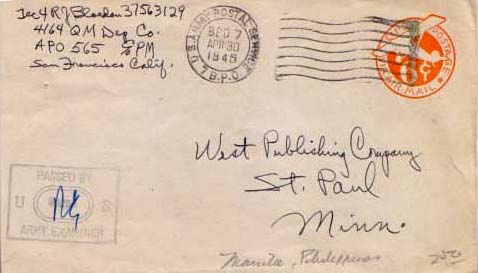 Tec 4 R J 37563129
4164 QM Dep Co.
APO 565 % PM
San Francisco Calif.
U.S. ARMY POSTAL SERVICE
B.P.O. 7
APR 30
1945
7 B.P.O.
U.S. POSTAGE
6¢
VIA AIR MAIL
West Publishing Company
St. Paul
Minn.
PASSED BY
U S
ARMY EXAMINER
Manila, Philippines